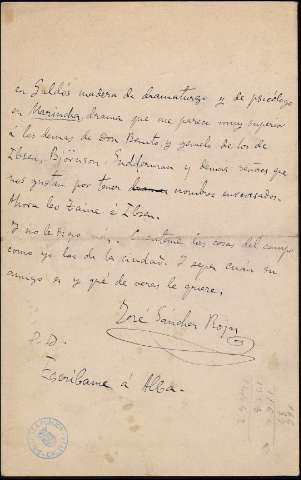 en Galdós madera de dramaturgo y de psicólogo
en Marinela, drama que me parece muy superior
á los demas de Don Benito y gemelo de los de
Ibsen, Björnson, Suddermann y demas señores que
nos gustan por tener nombres enrevesados.
Ahora leo Taine é Ibsen.
Y no le digo más. Cuénteme las cosas del campo
como yo las de la ciudad. Y sepa cuán su
amigo es y qué de veras le quiere.
José Sánchez Rojas
P.D.
Escríbame á Alba.